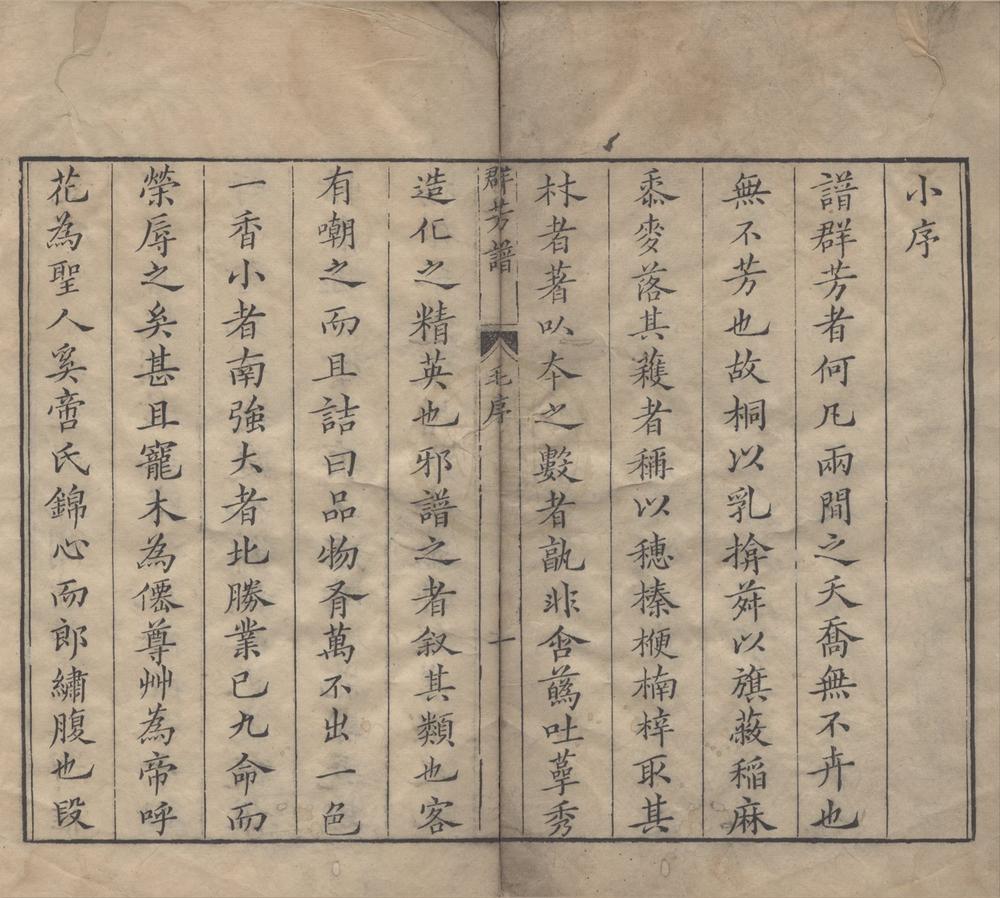 小序
譜群芳者何凡兩間之夭喬無不卉也
無不芳也故桐以乳揜蕣以旗蔽稲麻
黍麥落其蔟者稱以穗榛楩楠梓取其
林者著以夲之數者孰非含蘤吐蕚秀
群芳譜
毛序
一
造化之精英也邪譜之者叙其類也客
有嘲之而且詰曰品物有萬不出一色
一香小者南強大者北勝業已九命而
榮辱之矣甚且寵木為僊尊艸為帝呼
花為聖人奚啻氏錦心而郎繡腹也段